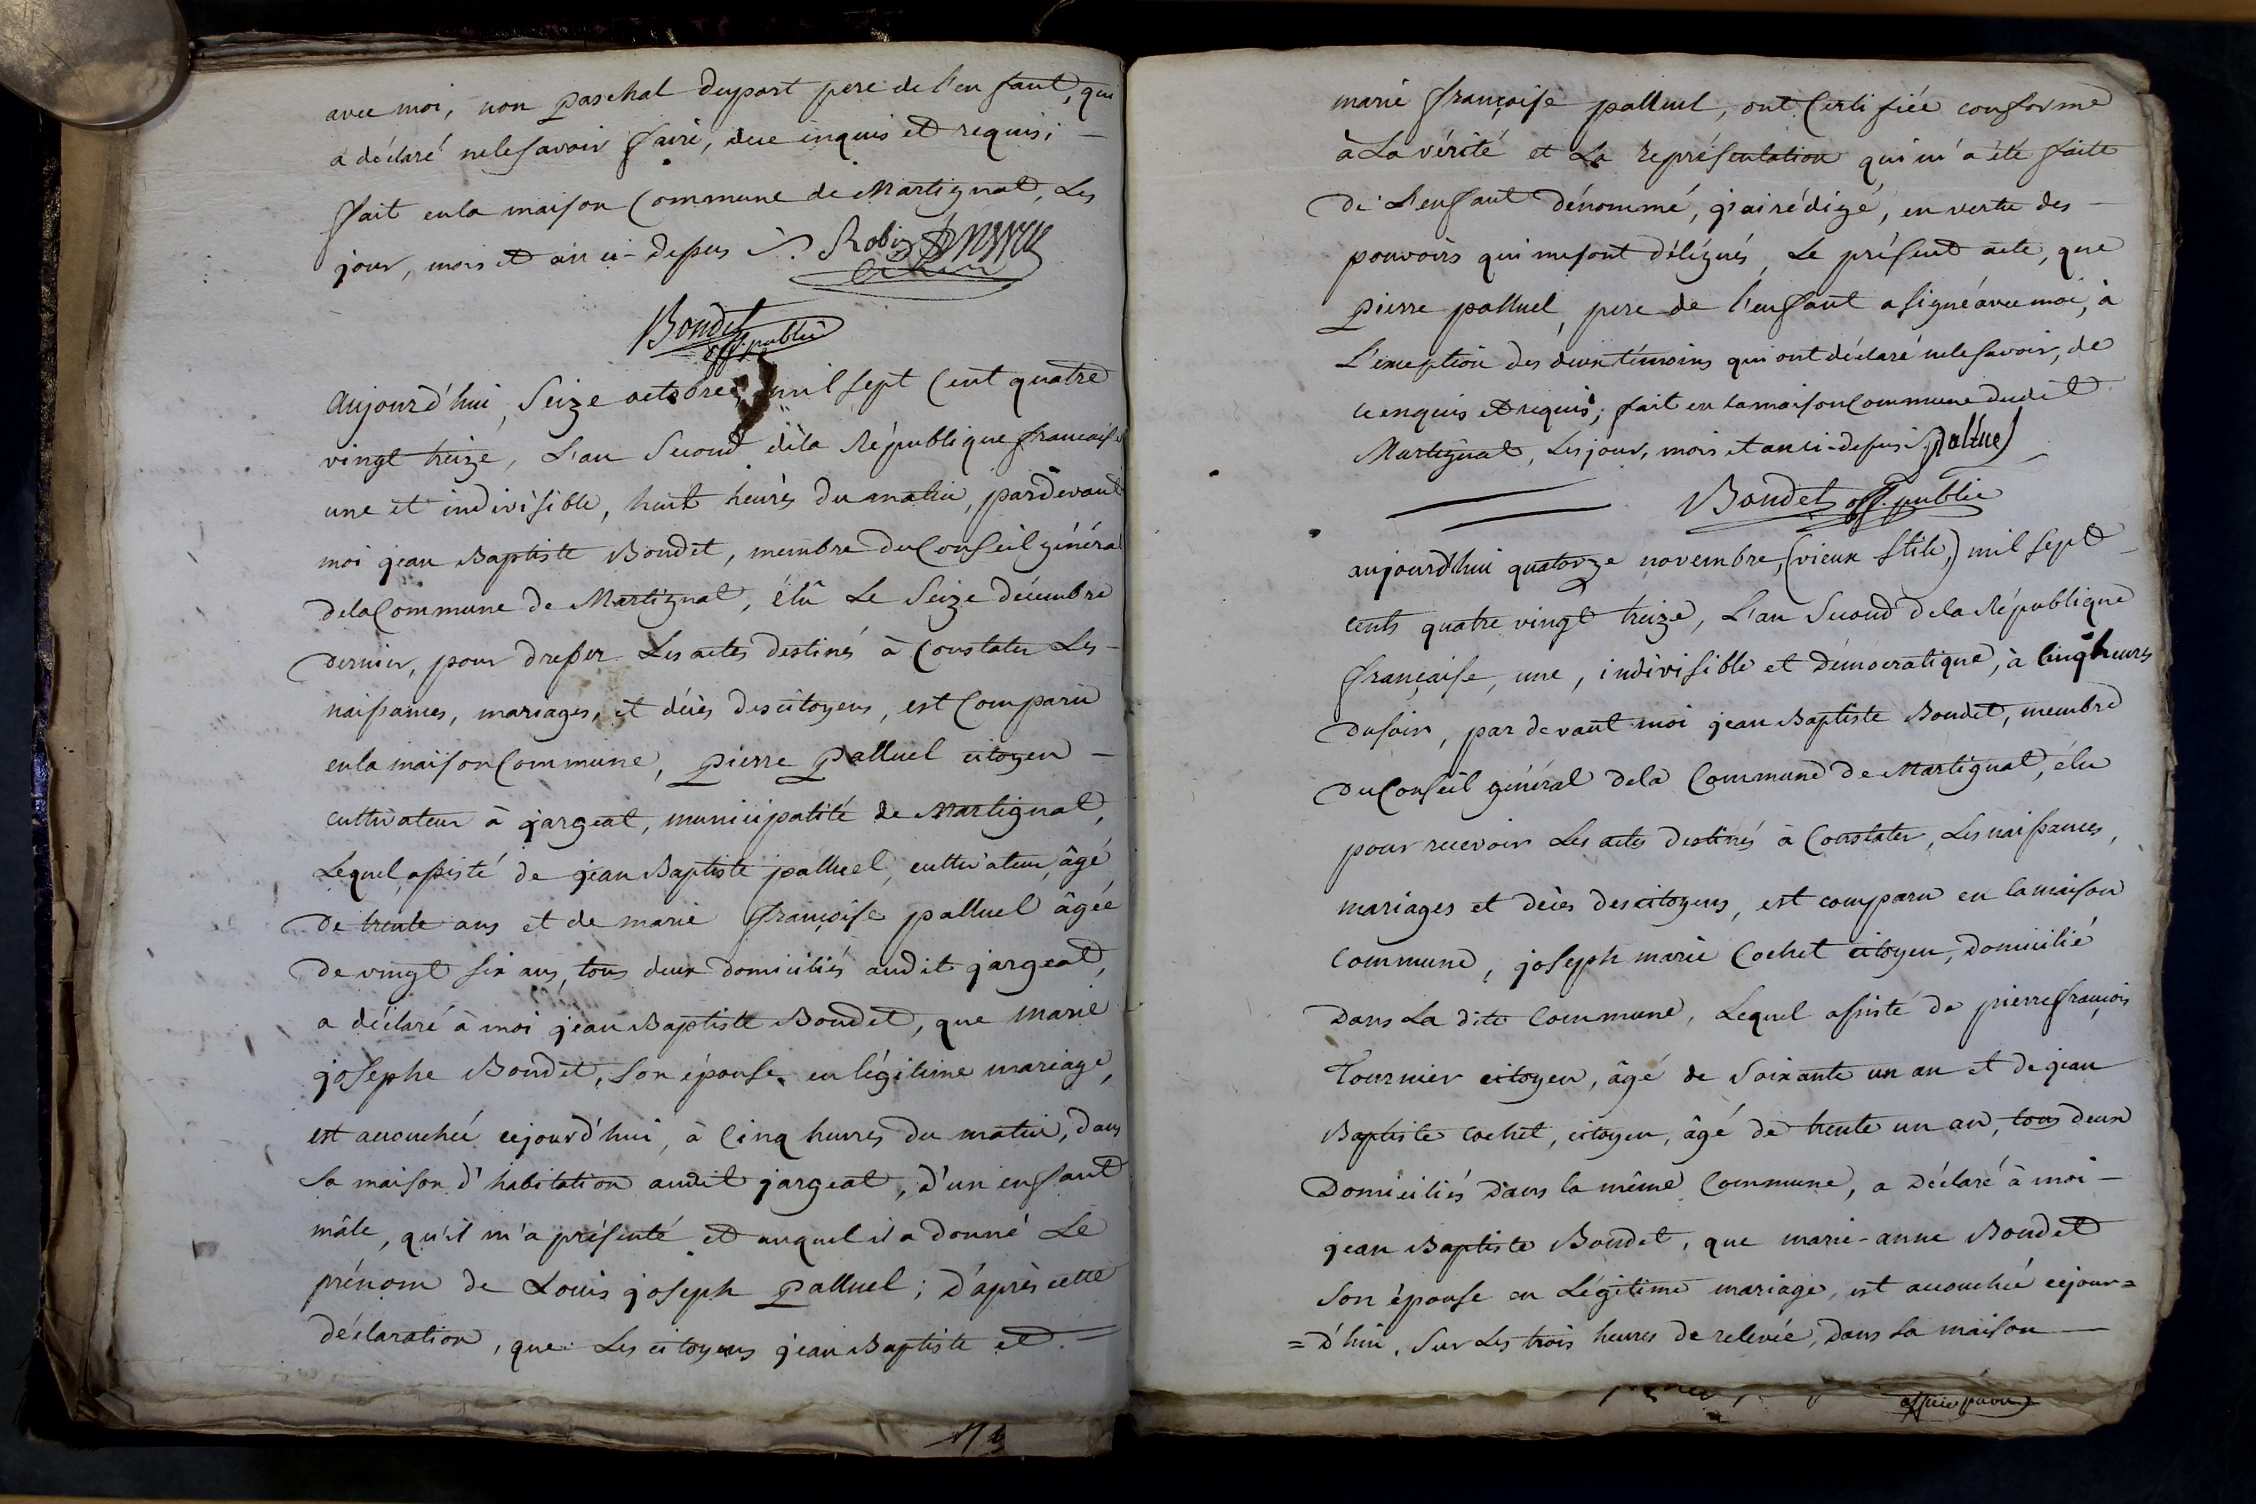 avec moi, non paschal dupart pere de l'enfant, qui
a déclaré ne le savoir faire, de ce inquis et requis; —
fait en la maison Commune de Martignat, Les
jour, mois et an ci-dessus ·/. Robin
Boudet
off. public
Aujourd'hui, Seize octobre, mil sept Cent quatre
vingt treize, L'an Second de la République française
une et indivisible, huit heures du matin, pardevant
moi jean Baptiste Boudet, membre du Conseil général
de la Commune de Martignat, élû Le Seize décembre
dernier, pour dresser Les actes destinés à Constater Les —
naissances, mariages, et décès des citoyens, est Comparu
en la maison Commune, pierre palluel citoyen —
cultivateur à jargeat, municipalité de Martignat,
Lequel assisté de jean Baptiste palluel, cultivateur, âgé
De trente ans et de marie françoise palluel âgée
De vingt six ans, tous deux domiciliés audit jargeat,
a déclaré à moi jean Baptiste Boudet, que marie
josephe Boudet, Son épouse en légitime mariage,
est accouchée cejourd'hui, à Cinq heures du matin, dans
Sa maison d'habitation audit jargeat, d'un enfant
mâle, qu'il m'a présenté et auquel il a donné Le
prénom de Louis joseph palluel; D'après cette
déclaration, que Les citoyens jean Baptiste et =
marie françoise palluel, ont Certifiée conforme
à La vérité et La représentation qui m'a été faite
De L'enfant dénommé, j'ai rédigé, en vertu des —
pouvoirs qui me sont délégués, Le présent acte, que
pierre palluel, pere de l'enfant a signé avec moi, à
L'exception des deux témoins qui ont déclaré ne le savoir, de
ce enquis et requis; fait en la maison Commune dudit
Martignat, Les jour, mois et an ci-dessus palluel
Boudet off. public
aujourd'hui quatorze novembre, (vieux stile,) mil sept —
cents quatre vingt treize, L'an Second de la République
française, une, indivisible et démocratique, à Cinq heures
Du soir, par devant moi jean Baptiste Boudet, membre
Du Conseil général de la Commune de Martignat, élu
pour recevoir Les actes destinés à Constater, Les naissances,
mariages et décès des citoyens, est comparu en la maison
Commune, joseph marie Cochet citoyen, domicilié
Dans La dite Commune, Lequel assisté de pierre françois
Tournier citoyen, âgé de soixante un an et de jean
Baptiste cochet, citoyen, âgé de trente un an, tous deux
Domiciliés dans la même Commune, a déclaré à moi —
jean Baptiste Boudet, que marie-anne Boudet
Son épouse en Légitime mariage, est accouchée cejour=
=d'hui, Sur Les trois heures de relevée, Dans Sa maison —